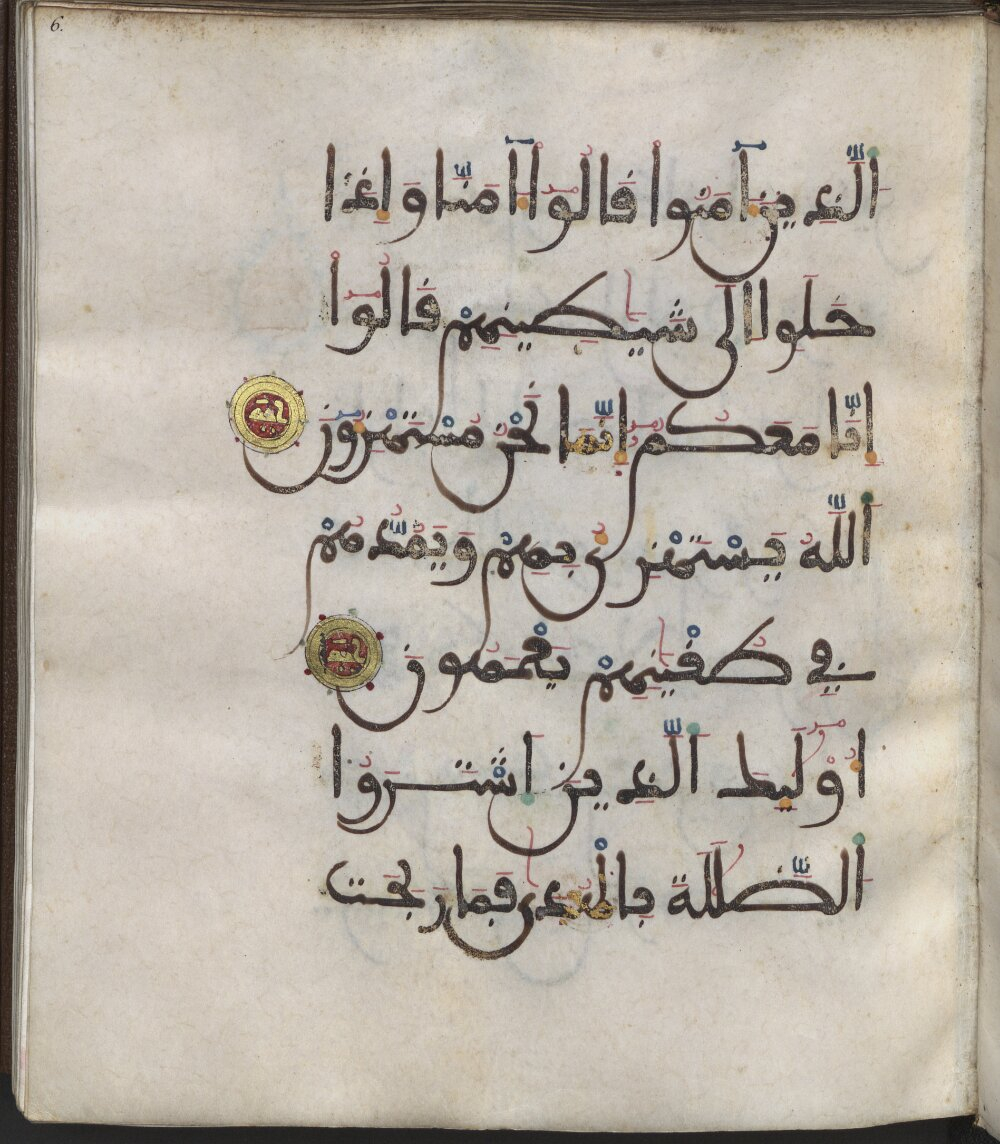 6.
الذين آمنوا قالوا آمنا وإذا
خلوا إلى شيطينهم قالوا
إنا معكم إنما نحن مستهزءون
الله يستهزئ بهم ويمدهم
في طغينهم يعمهون
أولئك الذين اشتروا
الضللة بالهدى فما ربحت